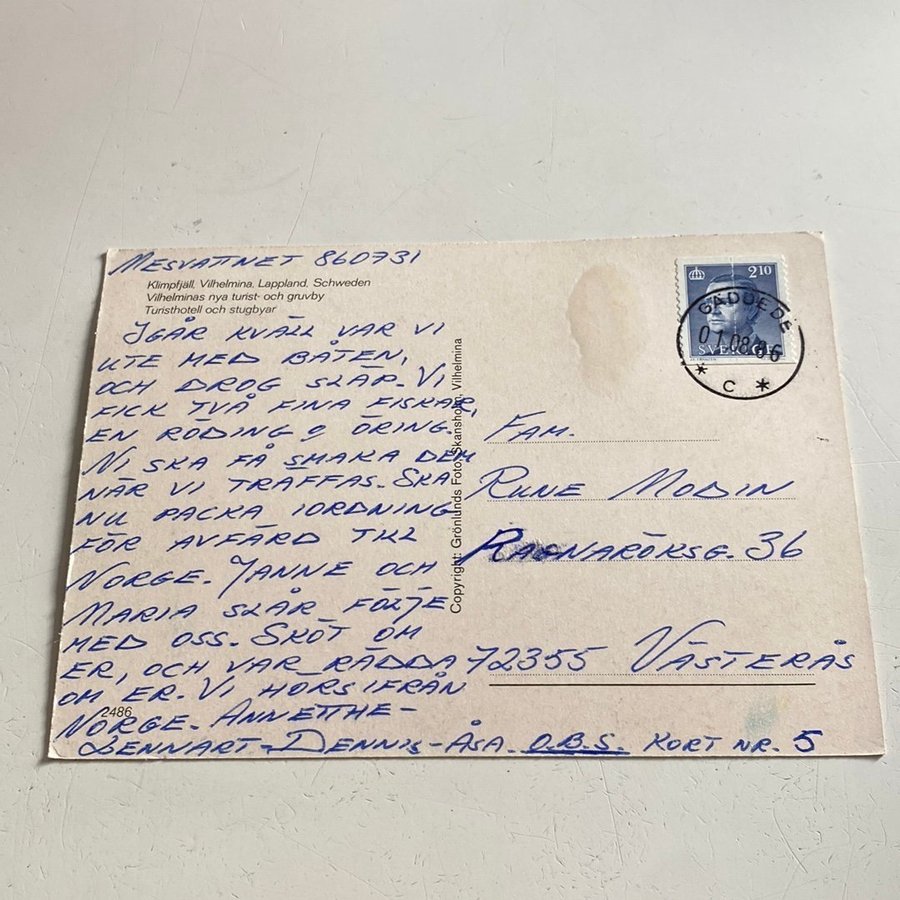 MESVATTNET 860731
Klimpfjäll, Vilhelmina, Lappland, Schweden
Vilhelminas nya turist- och gruvby
Turisthotell och stugbyar
IGÅR KVÄLL VAR VI
UTE MED BÅTEN,
OCH DROG SLÄP. VI
FICK TVÅ FINA FISKAR,
EN RÖDING O ÖRING.
NI SKA FÅ SMAKA DEM
NÄR VI TRÄFFAS. SKA
NU PACKA IORDNING
FÖR AVFÄRD TILL
NORGE. JANNE OCH
MARIA SLÅR FÖLJE
MED OSS. SKÖT OM
ER, OCH VAR RÄDDA
OM ER. VI HÖRS IFRÅN
NORGE. ANNETTHE-
LENNART-DENNIS-ÅSA. O.B.S. KORT NR. 5
2486
Copyright: Grönlunds Foto, Skansholm, Vilhelmina
210
SVERIGE
GÄDDEDE
01.08.86
* C *
FAM.
RUNE MODIN
RAGNARÖKSG. 36
72355 VÄSTERÅS